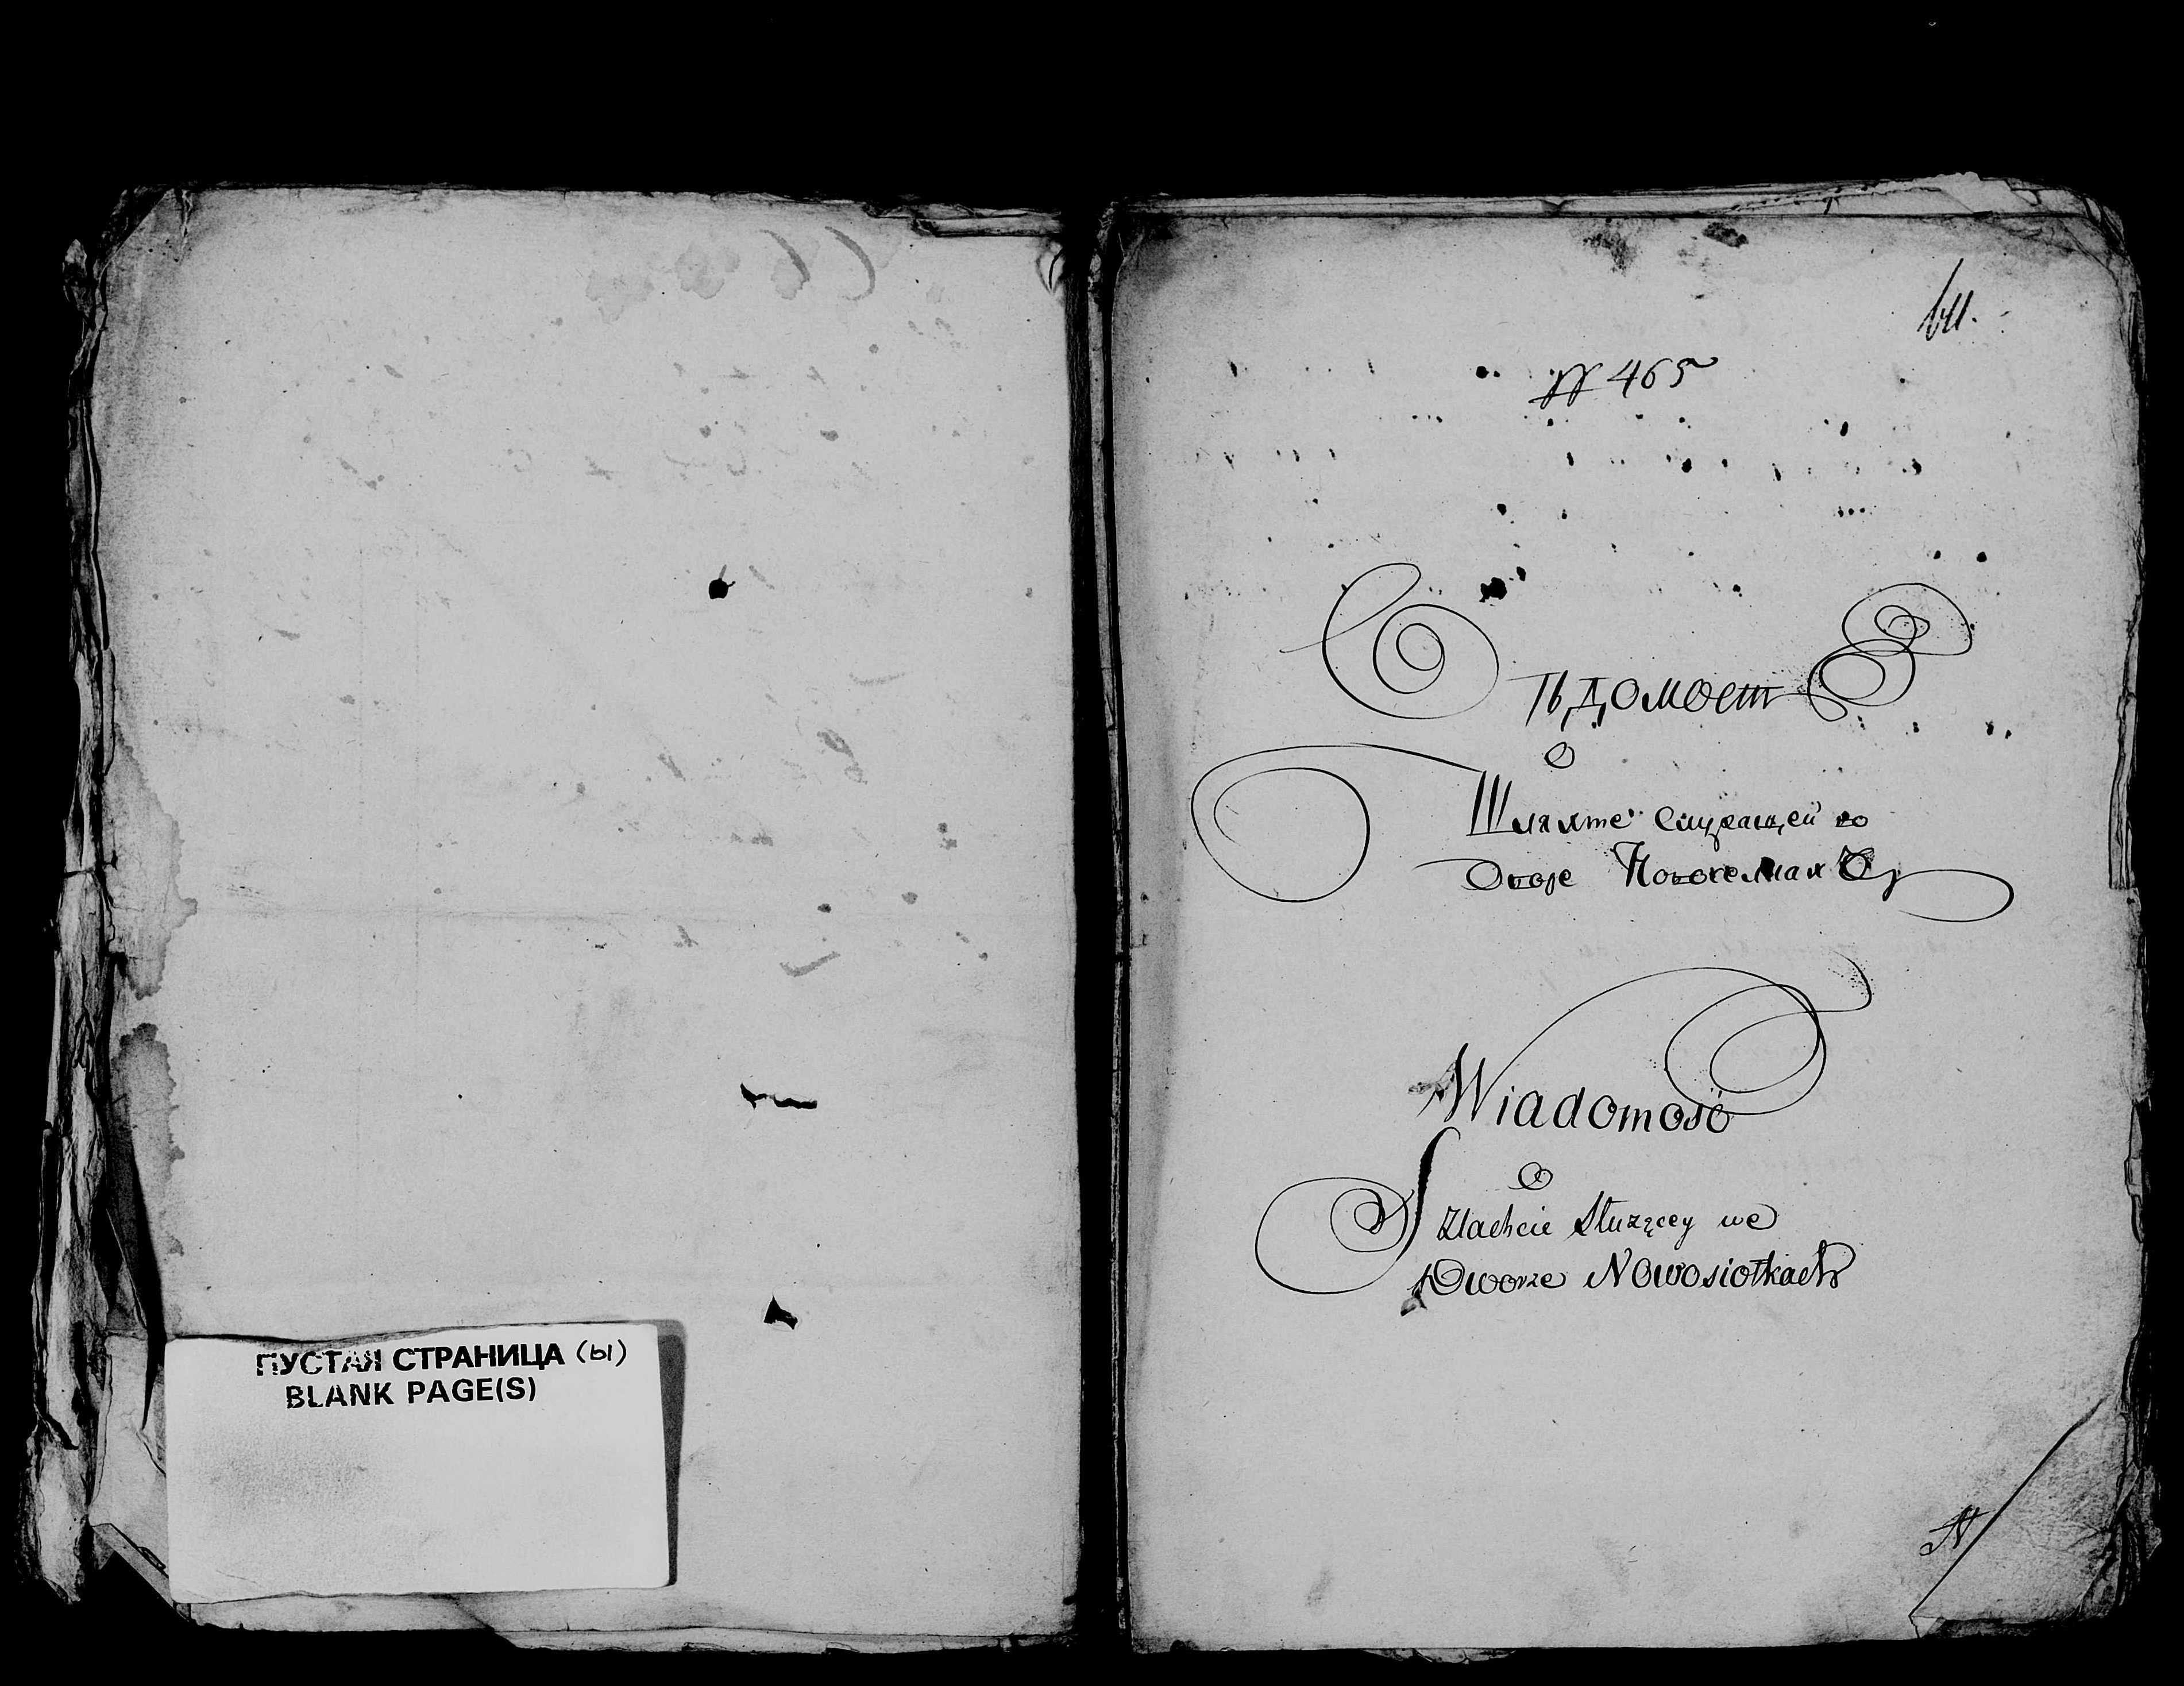 ПУСТАЯ СТРАНИЦА (ы)
BLANK PAGE(S)
№ 465
Вѣдомост
о
Шляхте Служащей во
Дворе
Wiadomość
o
Szlachcie Służącey we
Dworze Nowosiołkach
N